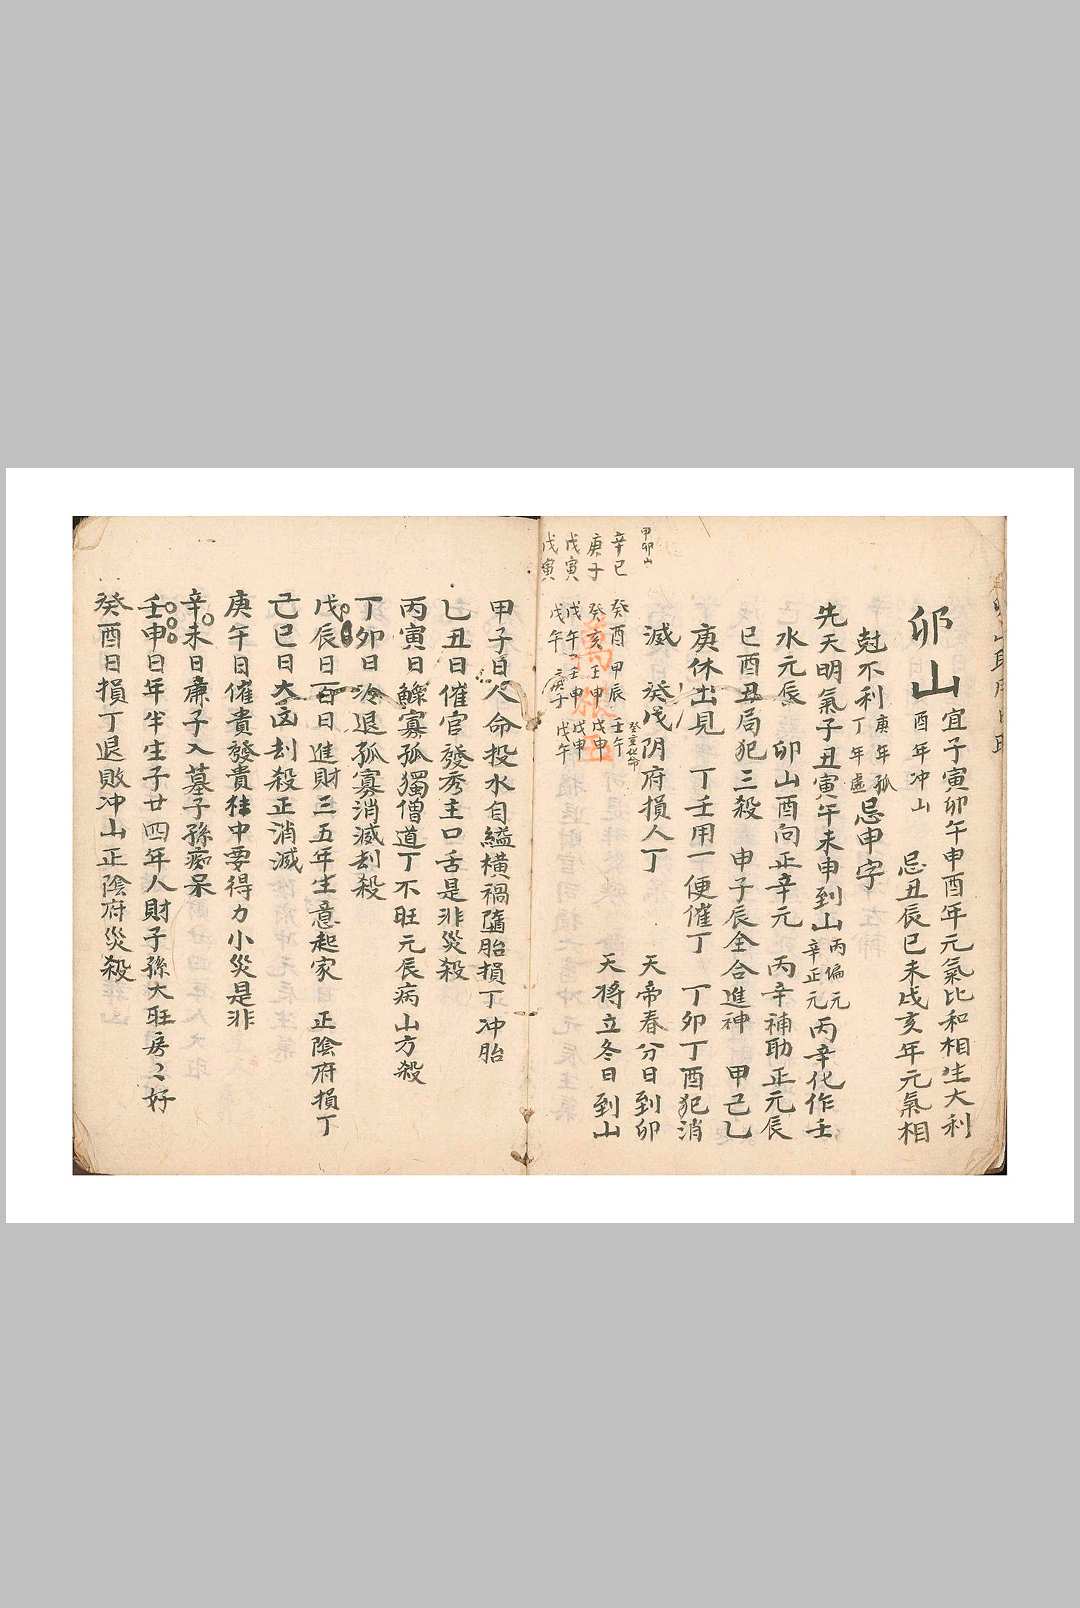 卯山
宜子寅卯午申酉年元氣比和相生大利
酉年冲山
忌丑辰巳未戌亥年元氣相
尅不利
庚年孤
丁年虛
忌甲字
先天明氣子丑寅午未申到山
丙偏元
辛正元
丙辛化作壬
水元辰 卯山酉向正辛元 丙辛補助正元辰
巳酉丑局犯三殺 申子辰全合進神 甲己乙
庚休出見 丁壬用一便催丁 丁卯丁酉犯消
滅 癸戊阴府損人丁 天帝春分日到卯
天將立冬日到山
甲卯山
辛巳 癸酉 甲辰 壬午
癸亥化命
庚子 癸亥 壬申 戊申
戊寅 戊午 壬申 戊申
戊寅 戊午 庚子 戊午
甲子日人命投水自縊橫禍墮胎損丁冲胎
乙丑日催官發秀主口舌是非災殺
丙寅日鰥寡孤獨僧道丁不旺元辰病山方殺
丁卯日冷退孤寡消滅刦殺
戊辰日百日進財三五年生意起家 正陰府損丁
己巳日大凶刦殺正消滅
庚午日催貴發貴柱中要得力小災是非
辛未日廉子入墓子孫痴呆
壬申日年半生子廿四年人財子孫大旺房々好
癸酉日損丁退敗冲山正陰府災殺